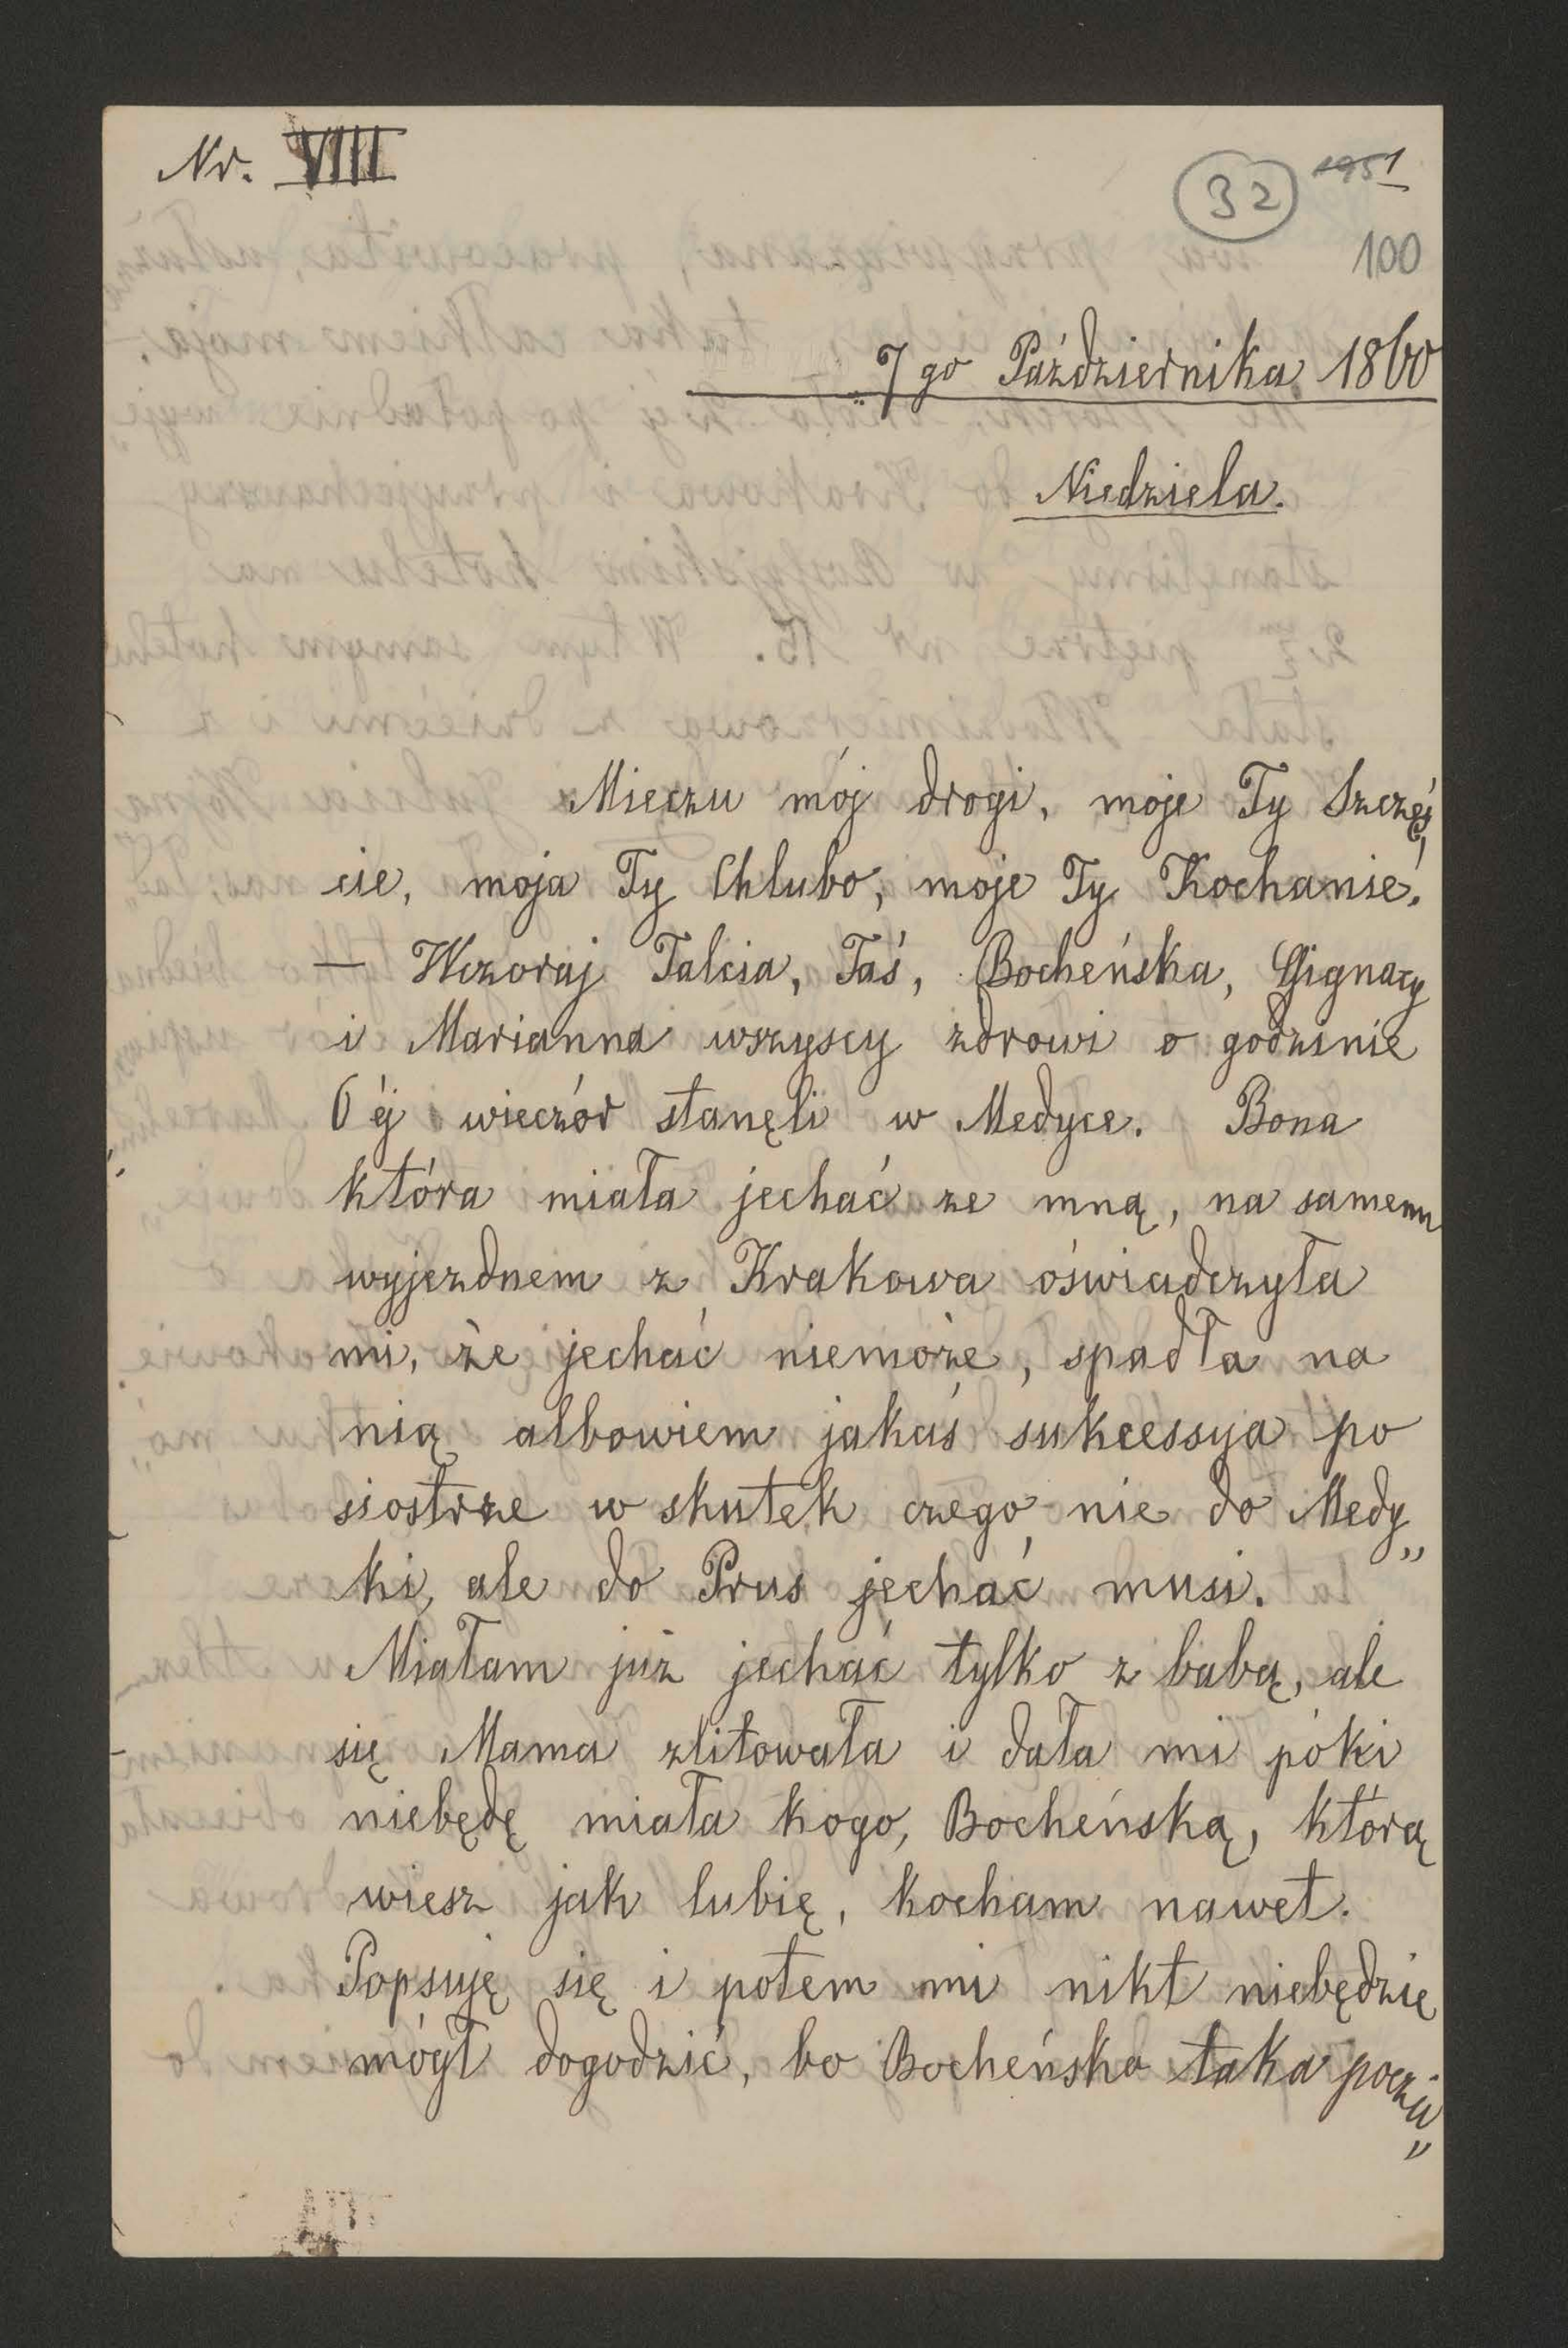 Nr. VIII
32
1951
100
7go Października 1860
Niedziela.
Mieczu mój drogi, moje Ty Szczęś„
cie, moja Ty Chlubo, moje Ty Kochanie.
— Wczoraj Talcia, Taś, Bocheńska, Ignacy
i Marianna wszyscy zdrowi o godzinie
6éj wieczór stanęli w Medyce. Bona
która miała jechać ze mną, na samem
wyjezdnem z Krakowa oświadczyła
mi, że jechać niemoże, spadła na
nią albowiem jakaś sukcessyja po
siostrze w skutek czego nie do Medy„
ki, ale do Prus jechać musi.
Miałam już jechać tylko z babą, ale
się Mama zlitowała i dała mi póki
niebędę miała kogo, Bocheńską, którą
wiesz jak lubię, kocham nawet.
Popsuję się i potem mi nikt niebędzie
mógł dogodzić, bo Bocheńska taka poczci„